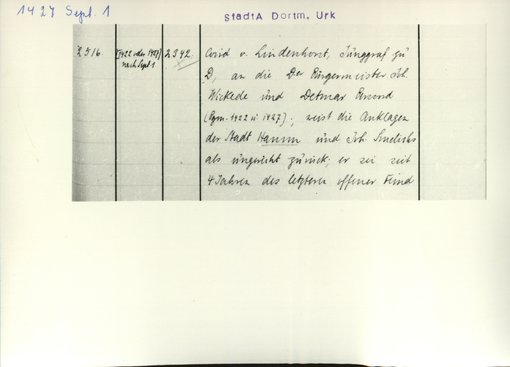 1427 Sept. 1
StadtA Dortm. Urk
2516
(1422 oder 1427)
nach Sept 1
2392.
Cord v. Lindenhorst, Junggraf zu
D, an die Der Bürgermeister Joh.
Wickede und Detmar
(Bgm. 1422 u 1427); weist die Anklagen
der Stadt Hamm und Joh. Smelichs
als ungerecht zurück; er sei seit
4 Jahren des letzteren offener Feind